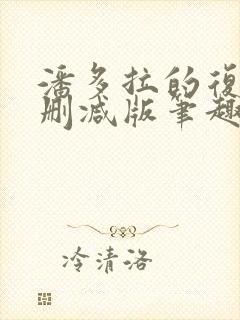 潘多拉的復
删减版笔趣
冷清洛